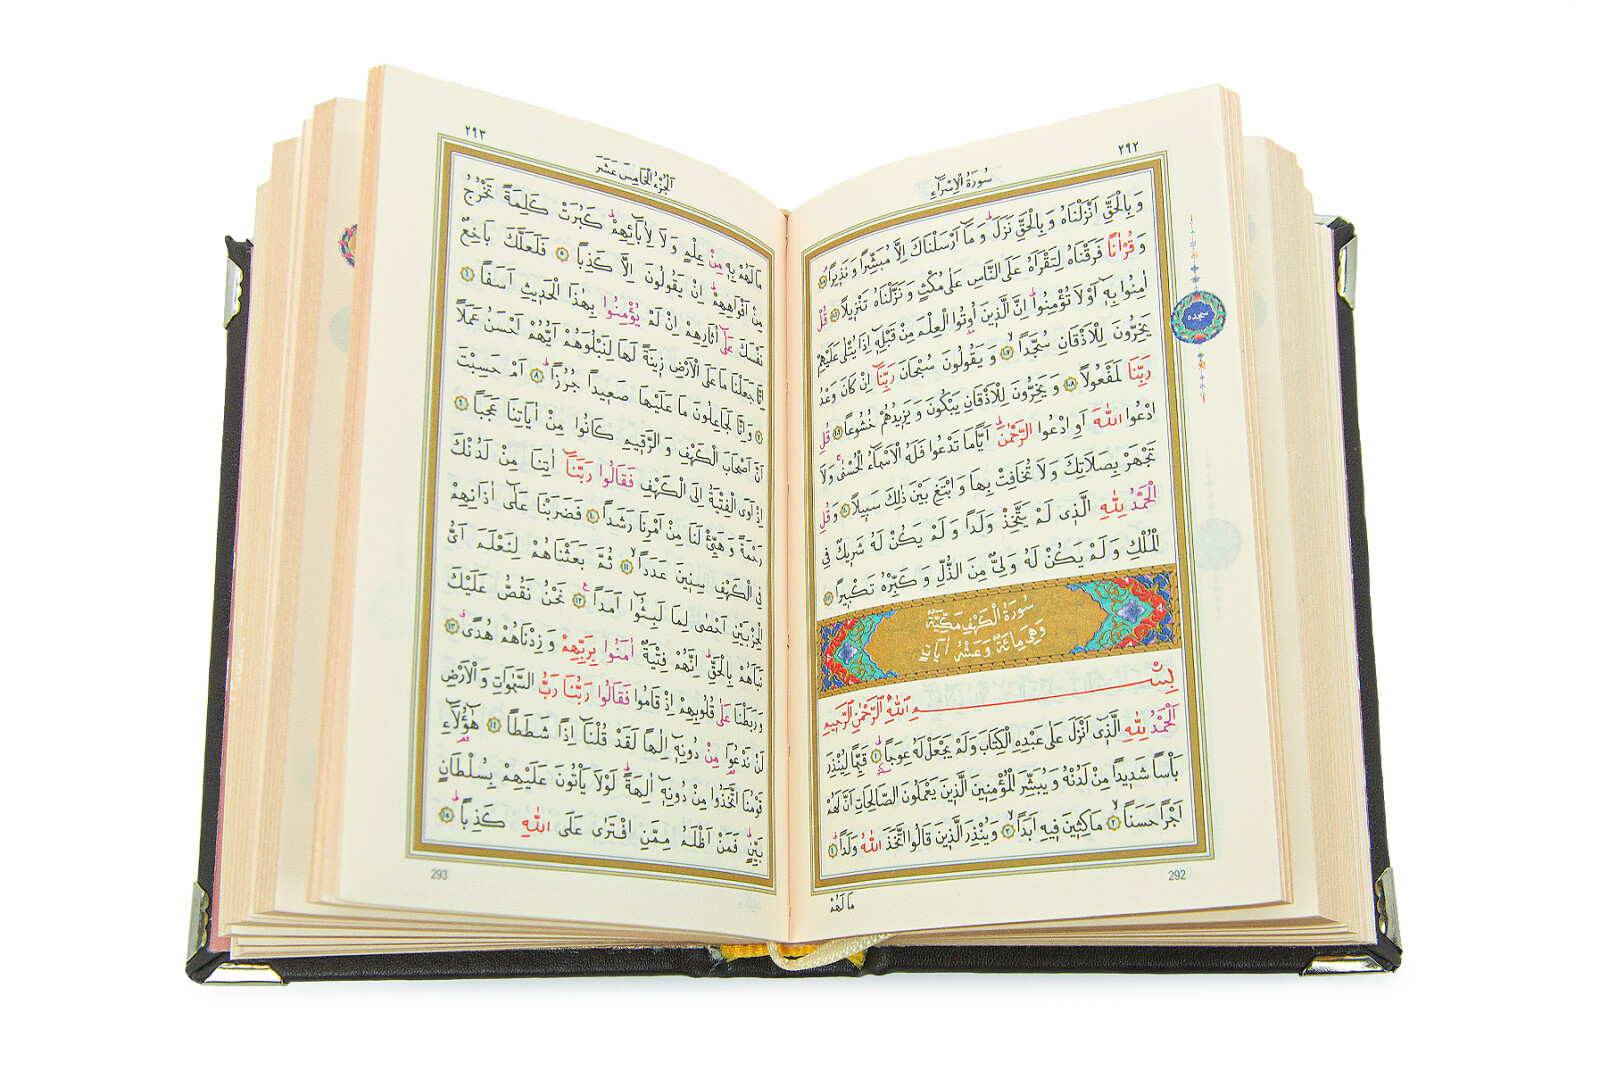 ٢٩٢
سُورَةُ الْاِسْرَٓاءِ
وَبِالْحَقِّ اَنْزَلْنَاهُ وَبِالْحَقِّ نَزَلَۜ وَمَٓا اَرْسَلْنَاكَ اِلَّا مُبَشِّرًا وَنَذ۪يرًاۢ ﴿١٠٥﴾
وَقُرْاٰنًا فَرَقْنَاهُ لِتَقْرَاَهُ عَلَى النَّاسِ عَلٰى مُكْثٍ وَنَزَّلْنَاهُ تَنْز۪يلًا ﴿١٠٦﴾ قُلْ
اٰمِنُوا بِه۪ٓ اَوْ لَا تُؤْمِنُواۜ اِنَّ الَّذ۪ينَ اُو۫تُوا الْعِلْمَ مِنْ قَبْلِه۪ٓ اِذَا يُتْلٰى عَلَيْهِمْ
يَخِرُّونَ لِلْاَذْقَانِ سُجَّدًاۙ ﴿١٠٧﴾ وَيَقُولُونَ سُبْحَانَ رَبِّنَٓا اِنْ كَانَ وَعْدُ
رَبِّنَا لَمَفْعُولًا ﴿١٠٨﴾ وَيَخِرُّونَ لِلْاَذْقَانِ يَبْكُونَ وَيَز۪يدُهُمْ خُشُوعًا ﴿١٠٩﴾ قُلِ
ادْعُوا اللّٰهَ اَوِ ادْعُوا الرَّحْمٰنَۜ اَيًّا مَا تَدْعُوا فَلَهُ الْاَسْمَٓاءُ الْحُسْنٰىۚ وَلَا
تَجْهَرْ بِصَلَاتِكَ وَلَا تُخَافِتْ بِهَا وَابْتَغِ بَيْنَ ذٰلِكَ سَب۪يلًا ﴿١١٠﴾ وَقُلِ
الْحَمْدُ لِلّٰهِ الَّذ۪ي لَمْ يَتَّخِذْ وَلَدًا وَلَمْ يَكُنْ لَهُ شَر۪يكٌ فِي
الْمُلْكِ وَلَمْ يَكُنْ لَهُ وَلِيٌّ مِنَ الذُّلِّ وَكَبِّرْهُ تَكْب۪يرًا ﴿١١١﴾
سجده
سُورَةُ الْكَهْفِ مَكِّيَّةٌ
وَهِيَ مِائَةٌ وَعَشْرُ اٰيَاتٍ
بِسْمِ اللّٰهِ الرَّحْمٰنِ الرَّح۪يمِ
اَلْحَمْدُ لِلّٰهِ الَّذ۪ٓي اَنْزَلَ عَلٰى عَبْدِهِ الْكِتَابَ وَلَمْ يَجْعَلْ لَهُ عِوَجًاۜ ﴿١﴾ قَيِّمًا لِيُنْذِرَ
بَأْسًا شَد۪يدًا مِنْ لَدُنْهُ وَيُبَشِّرَ الْمُؤْمِن۪ينَ الَّذ۪ينَ يَعْمَلُونَ الصَّالِحَاتِ اَنَّ لَهُمْ
اَجْرًا حَسَنًاۙ ﴿٢﴾ مَاكِث۪ينَ ف۪يهِ اَبَدًاۙ ﴿٣﴾ وَيُنْذِرَ الَّذ۪ينَ قَالُوا اتَّخَذَ اللّٰهُ وَلَدًاۗ ﴿٤﴾
292
مَا لَهُمْ
٢٩٣
اَلْجُزْءُ الْخَامِسَ عَشَرَ
مَا لَهُمْ بِه۪ مِنْ عِلْمٍ وَلَا لِاٰبَٓائِهِمْۜ كَبُرَتْ كَلِمَةً تَخْرُجُ
مِنْ اَفْوَاهِهِمْۜ اِنْ يَقُولُونَ اِلَّا كَذِبًا ﴿٥﴾ فَلَعَلَّكَ بَاخِعٌ
نَفْسَكَ عَلٰٓى اٰثَارِهِمْ اِنْ لَمْ يُؤْمِنُوا بِهٰذَا الْحَد۪يثِ اَسَفًا ﴿٦﴾
اِنَّا جَعَلْنَا مَا عَلَى الْاَرْضِ ز۪ينَةً لَهَا لِنَبْلُوَهُمْ اَيُّهُمْ اَحْسَنُ عَمَلًا
﴿٧﴾ وَاِنَّا لَجَاعِلُونَ مَا عَلَيْهَا صَع۪يدًا جُرُزًاۜ ﴿٨﴾ اَمْ حَسِبْتَ
اَنَّ اَصْحَابَ الْكَهْفِ وَالرَّق۪يمِ كَانُوا مِنْ اٰيَاتِنَا عَجَبًا ﴿٩﴾
اِذْ اَوَى الْفِتْيَةُ اِلَى الْكَهْفِ فَقَالُوا رَبَّنَٓا اٰتِنَا مِنْ لَدُنْكَ
رَحْمَةً وَهَيِّئْ لَنَا مِنْ اَمْرِنَا رَشَدًا ﴿١٠﴾ فَضَرَبْنَا عَلٰٓى اٰذَانِهِمْ
فِي الْكَهْفِ سِن۪ينَ عَدَدًاۙ ﴿١١﴾ ثُمَّ بَعَثْنَاهُمْ لِنَعْلَمَ اَيُّ
الْحِزْبَيْنِ اَحْصٰى لِمَا لَبِثُٓوا اَمَدًا۟ ﴿١٢﴾ نَحْنُ نَقُصُّ عَلَيْكَ
نَبَاَهُمْ بِالْحَقِّۜ اِنَّهُمْ فِتْيَةٌ اٰمَنُوا بِرَبِّهِمْ وَزِدْنَاهُمْ هُدًىۗ ﴿١٣﴾
وَرَبَطْنَا عَلٰى قُلُوبِهِمْ اِذْ قَامُوا فَقَالُوا رَبُّنَا رَبُّ السَّمٰوَاتِ وَالْاَرْضِ
لَنْ نَدْعُوَا۬ مِنْ دُونِه۪ٓ اِلٰهًا لَقَدْ قُلْنَٓا اِذًا شَطَطًا ﴿١٤﴾ هٰٓؤُ۬لَٓاءِ
قَوْمُنَا اتَّخَذُوا مِنْ دُونِه۪ٓ اٰلِهَةًۜ لَوْلَا يَأْتُونَ عَلَيْهِمْ بِسُلْطَانٍ
بَيِّنٍۜ فَمَنْ اَظْلَمُ مِمَّنِ افْتَرٰى عَلَى اللّٰهِ كَذِبًاۜ ﴿١٥﴾
293